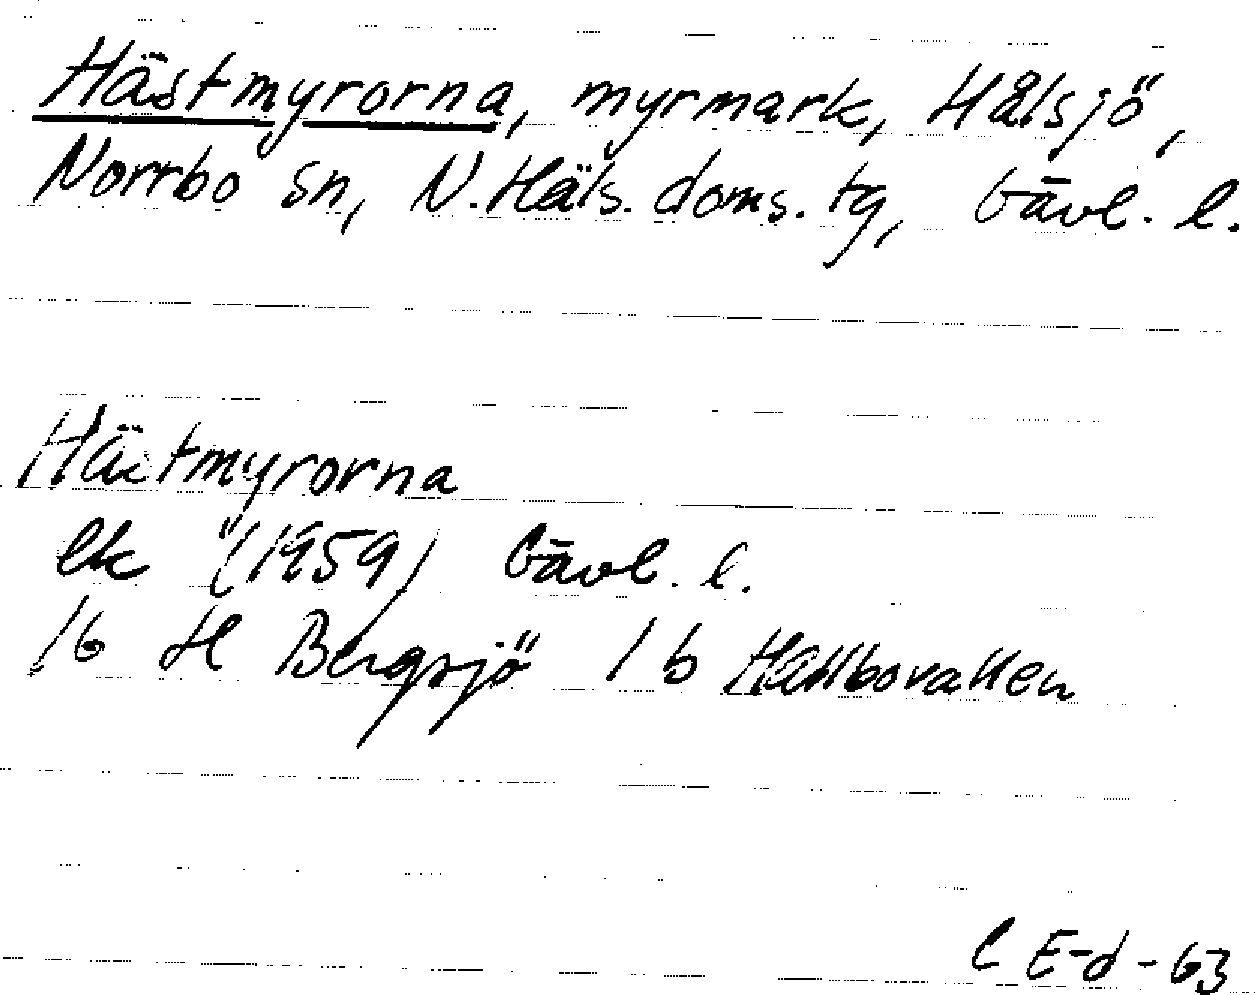 Hästmyrorna, myrmark, Hålsjö,
Norrbo sn, N. Häls. doms. tg, Gävl. l.
Hästmyrorna
ek (1959) Gävl. l.
16 H Bergsjö 1 b Hallbovallen
C E-d-63